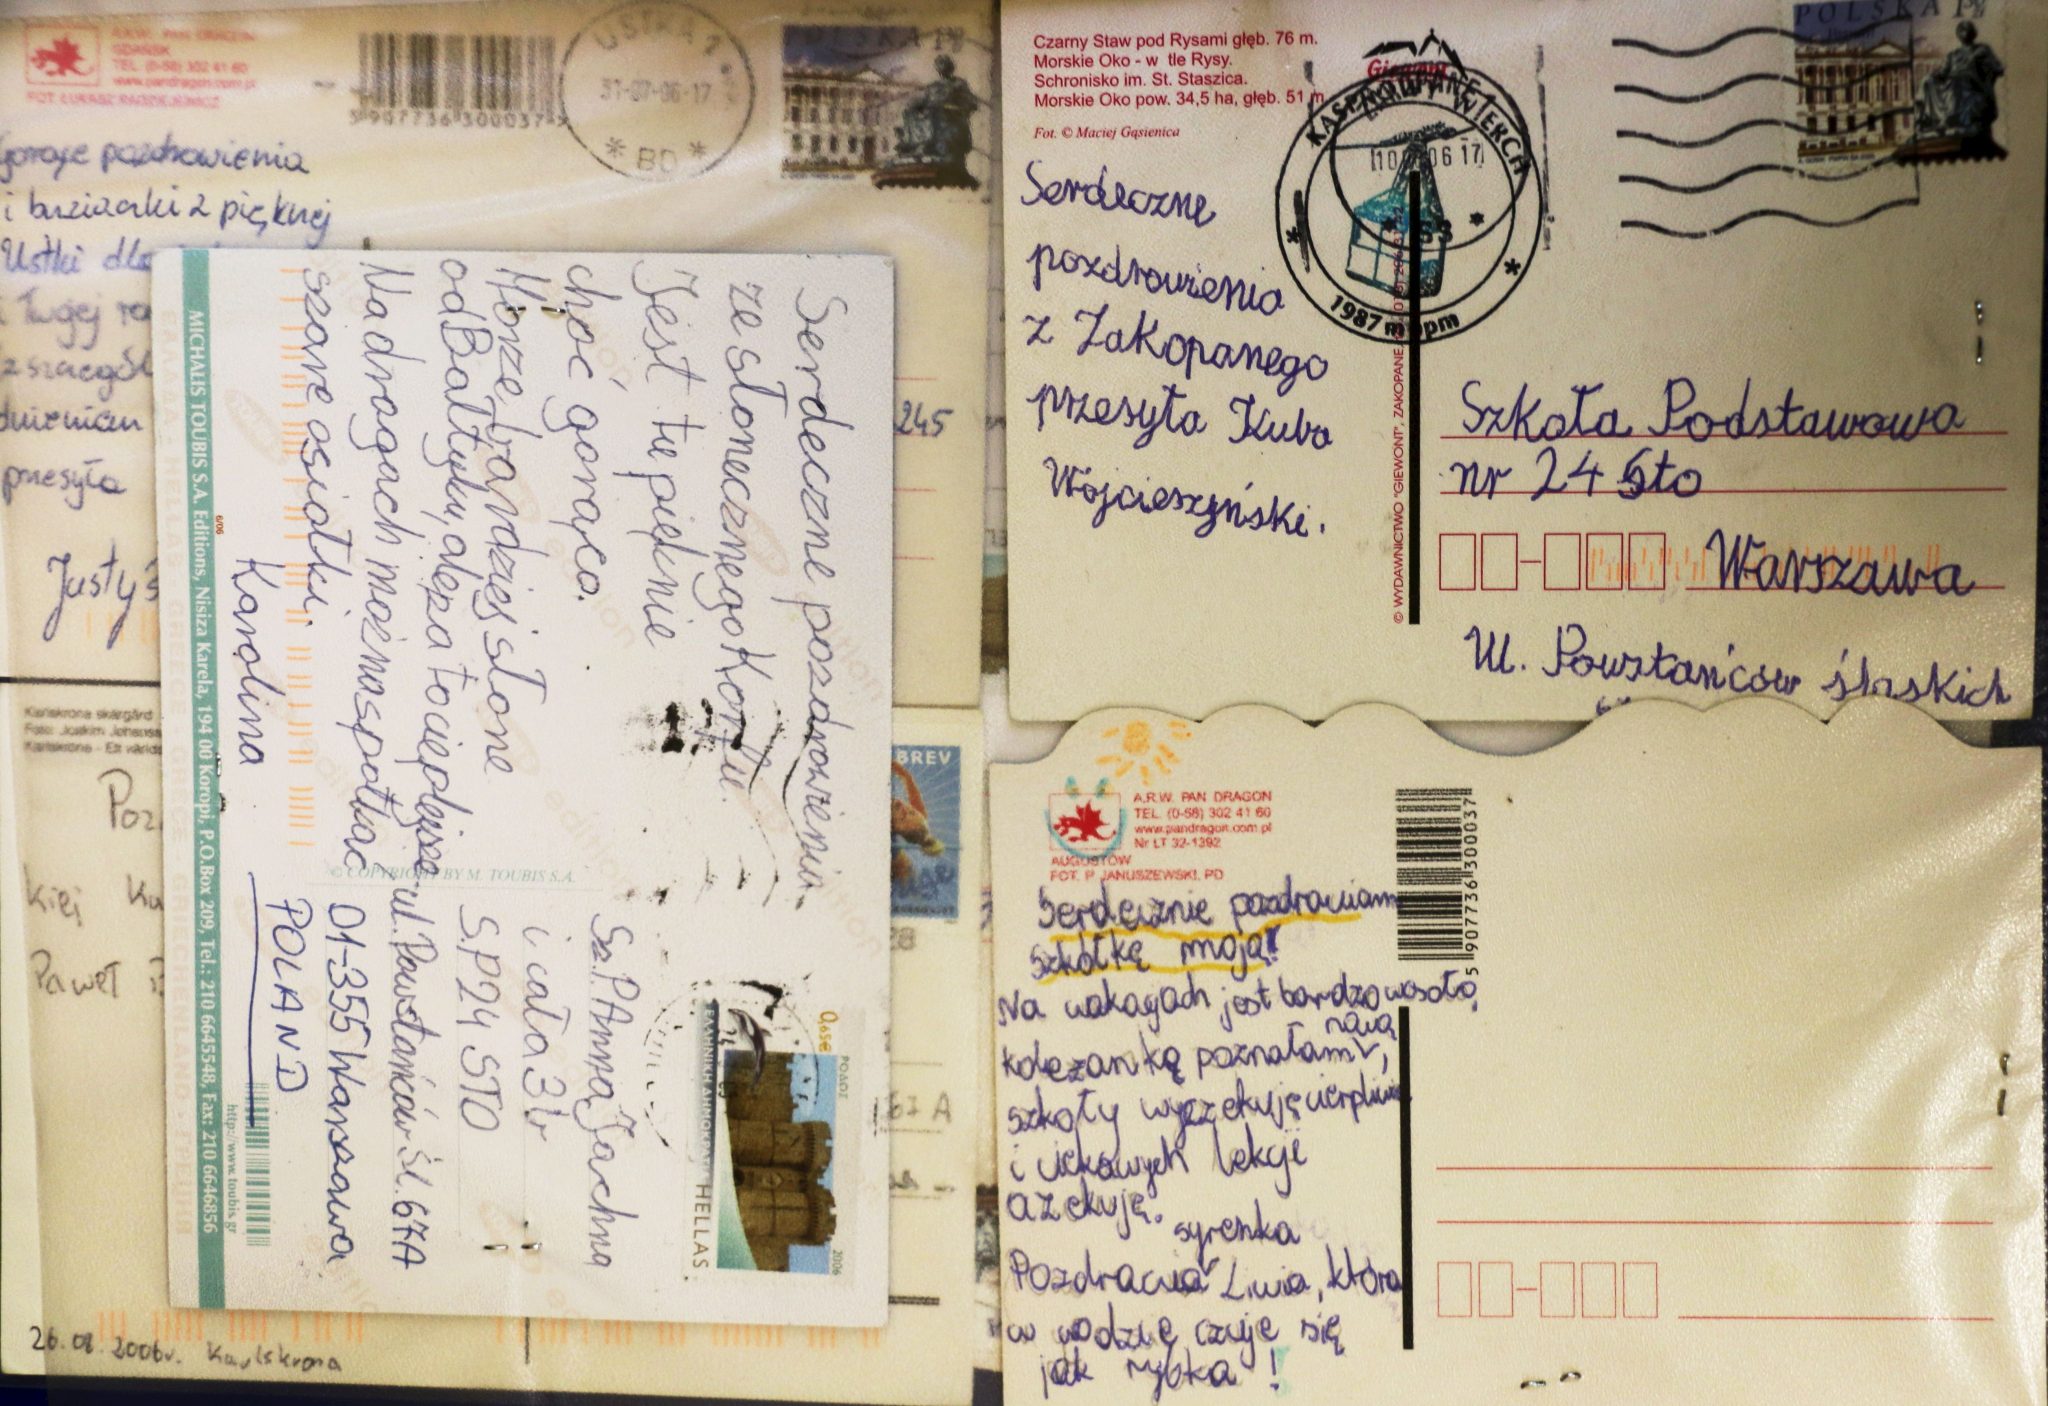 A.R.W. PAN DRAGON
GDAŃSK
TEL (0-58) 302 41 60
www.pandragon.com.pl
5 907736 300037 5
USTKA 1
31-07-06-17
* BD *
POLSKA
Gorące pozdrowienia
i buziaczki z pięknej
Ustki dla
i Twojej
przesyła
Justy
245
Czarny Staw pod Rysami głęb. 76 m.
Morskie Oko - w tle Rysy.
Schronisko im. St. Staszica.
Morskie Oko pow. 34,5 ha, głęb. 51 m.
Fot. © Maciej Gąsienica
KASPROWY WIERCH
1987 m npm
POLSKA
Serdeczne
pozdrowienia
z Zakopanego
przesyła Kuba
Wójcieszyński.
© WYDAWNICTWO "GIEWONT", ZAKOPANE,
Szkoła Podstawowa
nr 24 Sto
Warszawa
Ul. Powstańców śląskich
Serdeczne pozdrowienia
ze słonecznego Korfu.
Jest tu pięknie
choć gorąco.
Morze bardziej słone
od Bałtyku, ale za to cieplejsze
Na drogach można spotkać
szare osiołki.
Karolina
© COPYRIGHT BY M. TOUBIS S.A.
Sz. P. Anna Jachna
i cała 3 b
S.P 24 STO
ul. Powstańców Śl. 67A
01-355 Warszawa
POLAND
0,65€
ΡΟΔΟΣ
2006
ΕΛΛΗΝΙΚΗ ΔΗΜΟΚΡΑΤΙΑ HELLAS
6/06
MICHALIS TOUBIS S.A. Editions, Nisiza Karela, 194 00 Koropi, P.O.Box 209, Tel.: 210 6645548, Fax: 210 6646856
http://www.toubis.gr
Karlskrona skärgård
Poz
kiej
Paweł
BREV
67 A
26.08.2006r. Karlskrona
A.R.W. PAN DRAGON
TEL. (0-58) 302 41 60
www.pandragon.com.pl
Nr LT 32-1392
AUGUSTÓW
FOT. P. JANUSZEWSKI, PD
5 907736 300037
Serdecznie pozdrawiam
szkółkę moją!
Na wakacjach jest bardzo wesoło,
koleżankę nową poznałam,
szkoły wyczekuję cierpliwie
i ciekawych lekcji
oczekuję.
Pozdrawia syrenka Liwia, która
w wodzie czuje się
jak rybka!